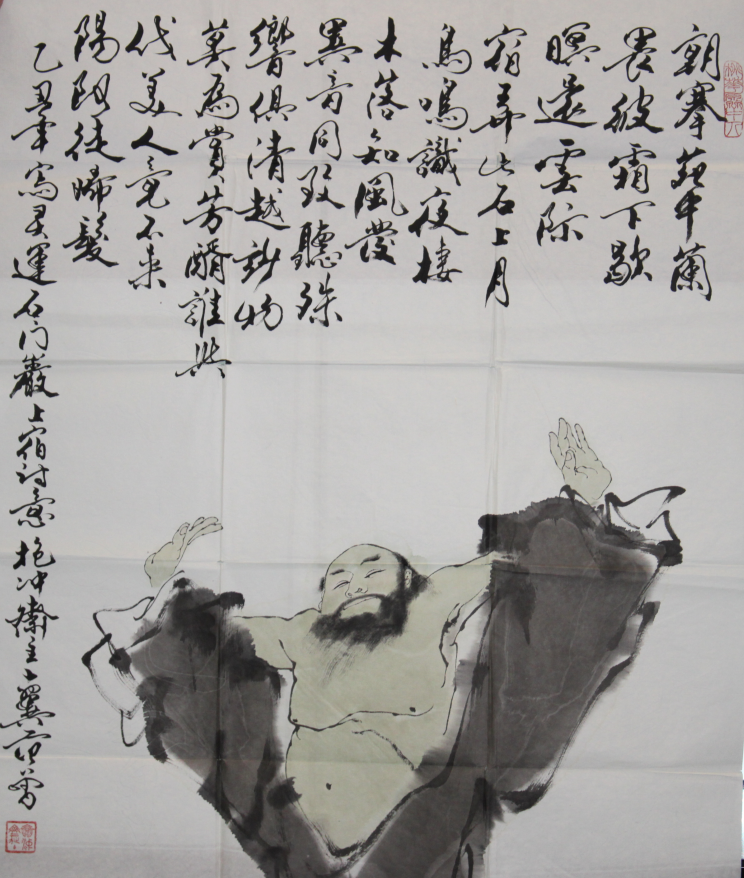 朝搴苑中蘭
畏彼霜下歇
暝還雲際
宿弄此石上月
鳥鳴識夜棲
木落知風發
異音同致聽殊
響俱清越妙物
莫為賞芳醑誰與
伐美人竟不来
陽阿徒晞髮
乙丑年寫灵運石门巖上宿诗意抱冲齋主十翼范曾